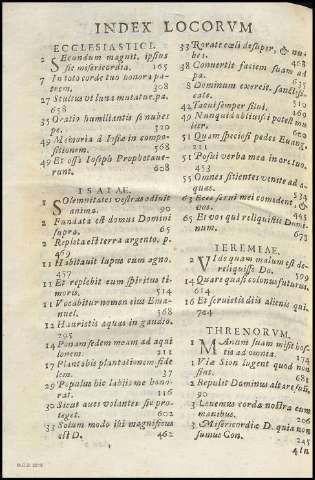 INDEX LOCORVM
ECCLESIASTICI.
2 SEcundum magnit. ipsius
sic misericordia. 165
7 In toto corde tuo honora patrem.
308
27 Stultus vt luna mutatur. pa.
658
35 Oratio humiliantis se nubes
pe. 320
49 Memoria d Iosiæ in compositionem.
568
49 Et ossa Ioseph Prophetauerunt.
608
ISAIAE.
1 SOlemnitates vestras odiuit
anima. 90
2 Fundata est domus Domini
supra. 65
2 Repleta est terra argento. p.
469
11 Habitauit lupus cum agno.
457
11 Et replebit eum spiritus timoris.
514
11 Vocabitur nomen eius Emanuel.
368
12 Hauristis aquas in gaudio.
295
14 Ponam sedem meam ad aquilonem.
211
17 Plantabis plantationem fidelem.
37
29 Populus hic labijs me honorat.
116
30 Sicut aues volantes sic proteget.
602
33 Solum modo ibi magnificus
est D. 462
33 Rorate cœli desuper, & nubes.
468
38 Conuertit faciem suam ad
pa. 635
8 Dominum exercit. sanctificate.
510
42 Tacui semper silui. 169
49 Nunquid obliuisci potest mulier.
600
51 Quam speciosi pedes Euang.
211
51 Posui verba mea in ore tuo.
453
55 Omnes sitientes venite ad aquas.
534
63 Ecce serui mei comedent, &
vos. 631
65 Et vos qui reliquistis Dominum.
673
IEREMIAE.
2 VIde quam malum est dereliquisse
Do. 509
14 Quare quasi colonus futurus.
614
16 Et seruietis diis alienis qui.
744
THRENORVM.
1 MAnum suam misit hostis
ad omnia. 174
1 Viæ Sion lugent quod non
sint. 681
2 Repulit Dominus altare suũ.
90
3 Leuemus corda nostra cum
manibus. 206
3 Misericordiæ D. quia non
sumus Con. 245
4 In
B.C.D. 2018